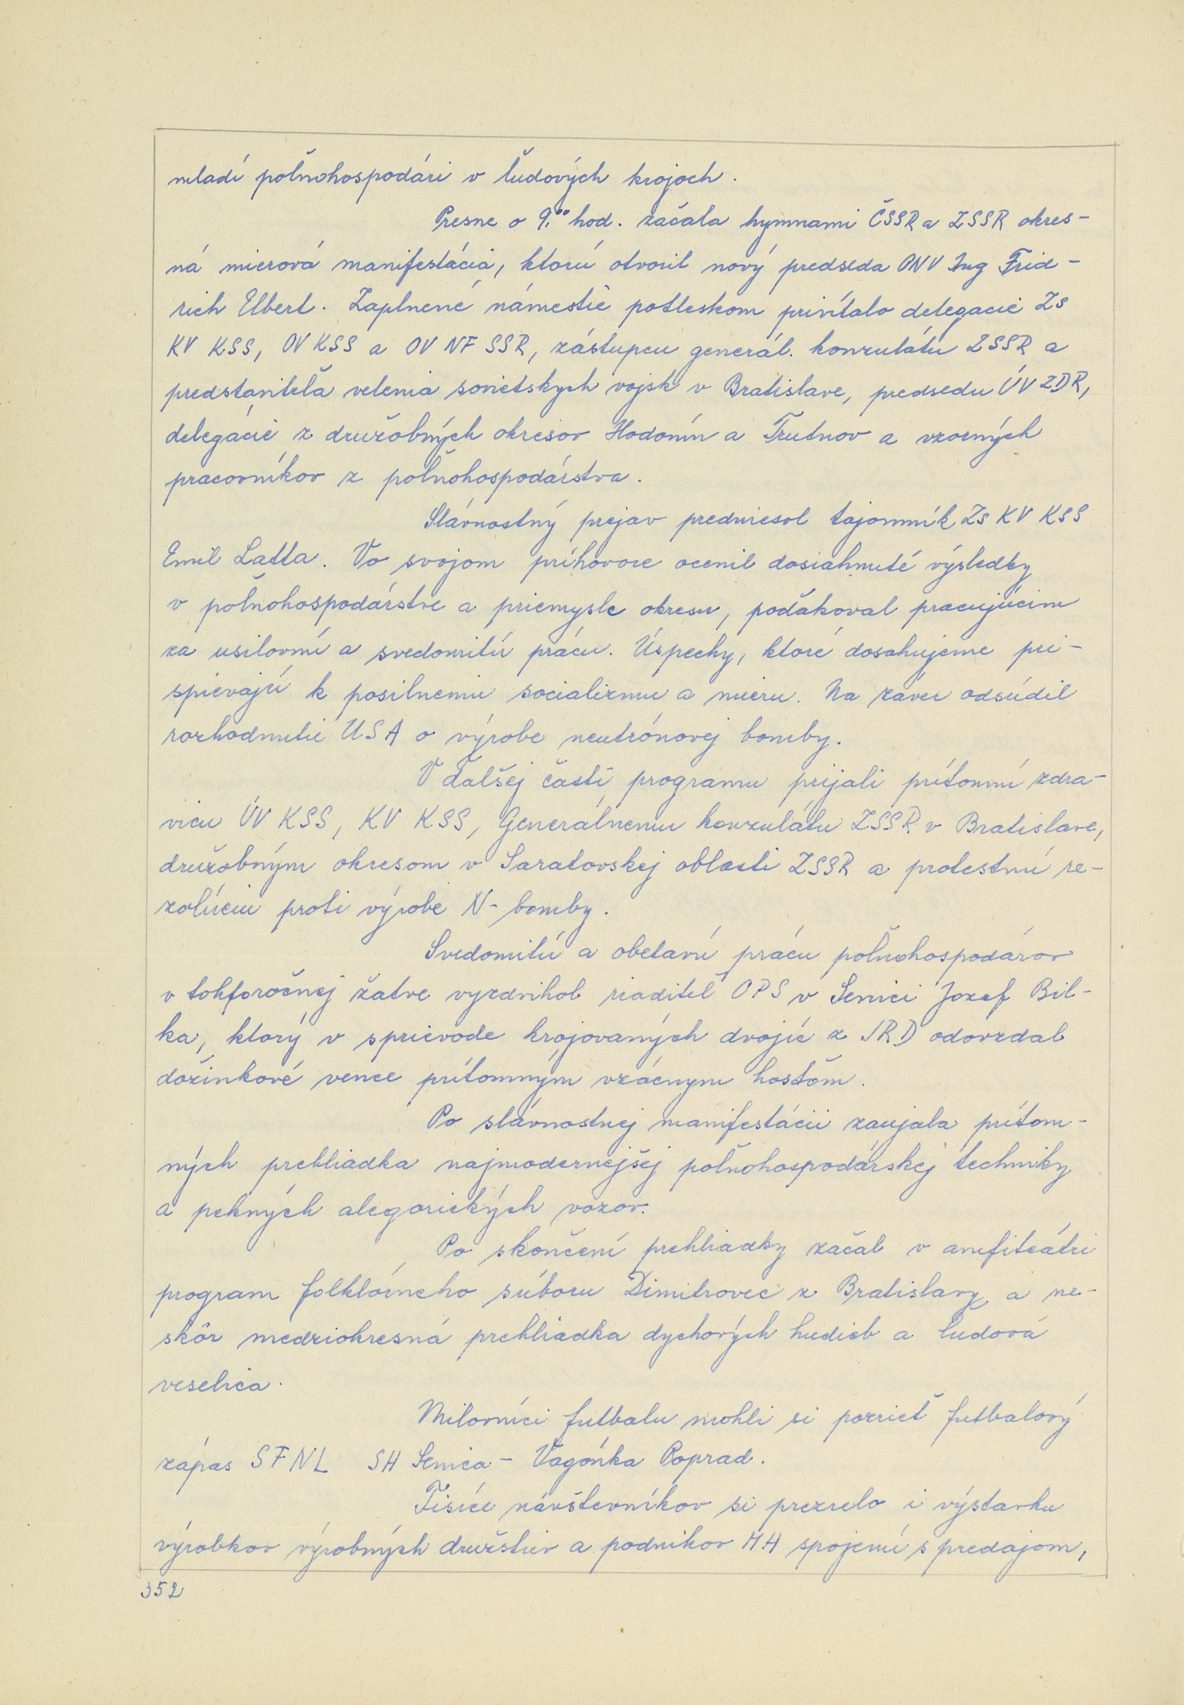 mladí poľnohospodári v ľudových krojoch.
Presne o 9.⁰⁰ hod. začala hymnami ČSSR a ZSSR okres-
ná mierová manifestácia, ktorú otvoril nový predseda ONV Ing Frid-
rich Elbert. Zaplnené námestie potleskom privítalo delegacie Zs
KV KSS, OV KSS a OV NF SSR, zástupcu generál. konzulátu ZSSR a
predstaviteľa velenia sovietskych vojsk v Bratislave, predsedu ÚV ZDR,
delegácie z družobných okresov Hodonín a Trutnov a vzorných
pracovníkov z poľnohospodárstva.
Slávnostný prejav predniesol tajomník Zs KV KSS
Emil Latta. Vo svojom príhovore ocenil dosiahnuté výsledky
v poľnohospodárstve a priemysle okresu, poďakoval pracujúcim
za usilovnú a svedomitú prácu. Úspechy, ktoré dosahujeme pri-
spievajú k posilneniu socializmu a mieru. Na záver odsúdil
rozhodnutie USA o výrobe neutrónovej bomby.
V ďalšej časti programu prijali prítomní zdra-
vicu ÚV KSS, KV KSS, Generálnemu konzulátu ZSSR v Bratislave,
družobným okresom v Saratovskej oblasti ZSSR a protestnú re-
zolúciu proti výrobe N-bomby.
Svedomitú a obetavú prácu poľnohospodárov
v tohtoročnej žatve vyzdvihol riaditeľ OPS v Senici Jozef Bil-
ka, ktorý v sprievode krojovaných dvojíc z JRD odovzdal
dožinkové vence prítomným vzácnym hosťom.
Po slávnostnej manifestácii zaujala prítom-
ných prehliadka najmodernejšej poľnohospodárskej techniky
a pekných alegorických vozov.
Po skončení prehliadky začal v amfiteátri
program folklórneho súboru Dimitrovec z Bratislavy a ne-
skôr medziokresná prehliadka dychových hudieb a ľudová
veselica.
Milovníci futbalu mohli si pozrieť futbalový
zápas SFNL SH Senica - Vagónka Poprad.
Tisíce návštevníkov si prezrelo i výstavku
výrobkov výrobných družstiev a podnikov MH spojenú s predajom,
352